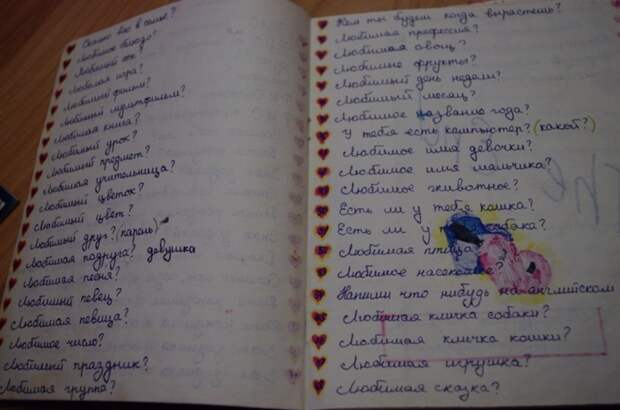 Сколько вас в семье?
Любимое блюдо?
Любимый
Любимая игра?
Любимый фильм?
Любимый мультфильм?
Любимая книга?
Любимый урок?
Любимый предмет?
Любимая учительница?
Любимый цветок?
Любимый цвет?
Любимый друг? (парень)
Любимая подруга? девушка
Любимая песня?
Любимый певец?
Любимая певица?
Любимое число?
Любимый праздник?
Любимая группа?
Кем ты будеш когда вырастешь?
Любимая профессия?
Любимая овощ?
Любимые фрукты?
Любимый день недели?
Любимый месяц?
Любимое название года?
У тебя есть компьютер? (какой?)
Любимое имя девочки?
Любимое имя мальчика?
Любимое животное?
Есть ли у тебя кошка?
Есть ли у собака?
Любимая птица
Любимое насеком ?
Напиши что нибудь на английском
Любимая кличка собаки?
Любимая кличка кошки?
Любимая игрушка?
Любимая сказка?